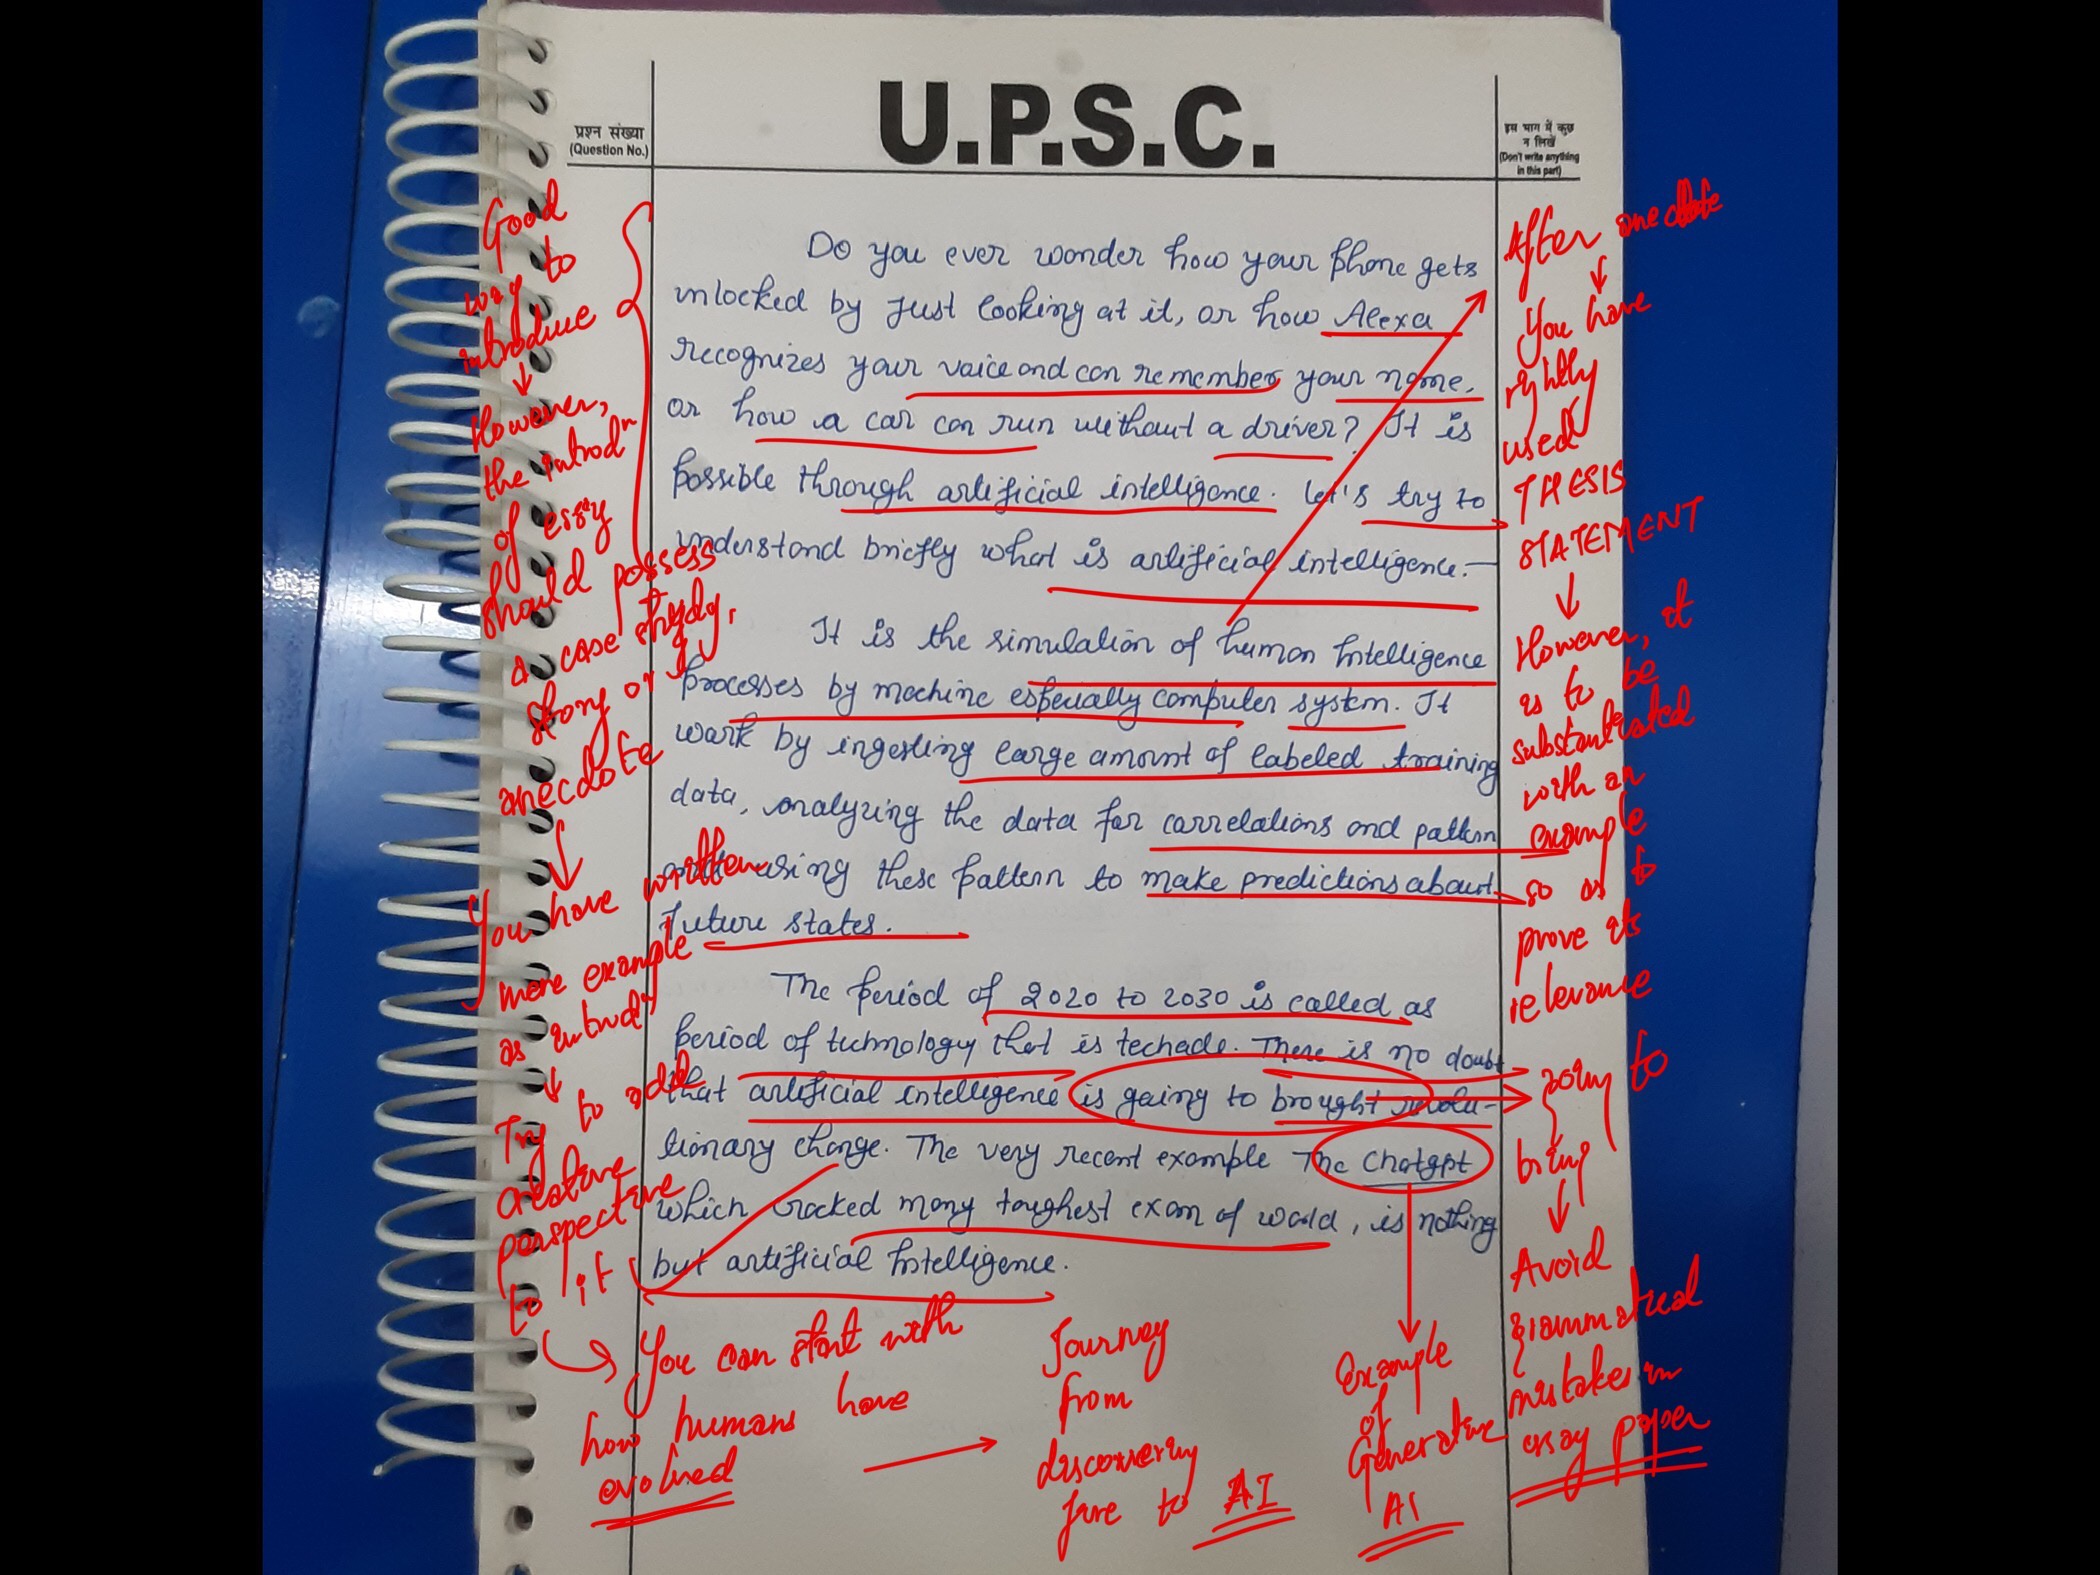 U.P.S.C.
प्रश्न संख्या
(Question No.)
इस भाग में कुछ
न लिखें
(Don't write anything
in this part)
Do you ever wonder how your phone gets
unlocked by just looking at it, or how Alexa
recognizes your voice and can remember your name,
or how a car can run without a driver? It is
possible through artificial intelligence. Let's try to
understand briefly what is artificial intelligence.—
It is the simulation of human Intelligence
processes by machine especially computer system. It
work by ingesting large amount of labeled training
data, analyzing the data for correlations and pattern
and using these pattern to make predictions about
future states.
The period of 2020 to 2030 is called as
period of technology that is techade. There is no doubt
that artificial intelligence is going to brought revolu-
tionary change. The very recent example The Chatgpt
which cracked many toughest exam of world, is nothing
but artificial Intelligence.
Good
way to
introduce
↓
However,
the introdⁿ
of essay
should possess
a case study,
story or
anecdote
↓
You have written
more example
as introdⁿ
↓
Try to add
creative
perspective
to it
You can start with
how humans have
evolved
→
Journey
from
discovering
fire to AI
Example
of
Generative
AI
After anecdote
↓
You have
rightly
used
THESIS
STATEMENT
↓
However, it
is to be
substantiated
with an
example
so as to
prove its
relevance
going to
bring
↓
Avoid
grammatical
mistakes in
essay paper